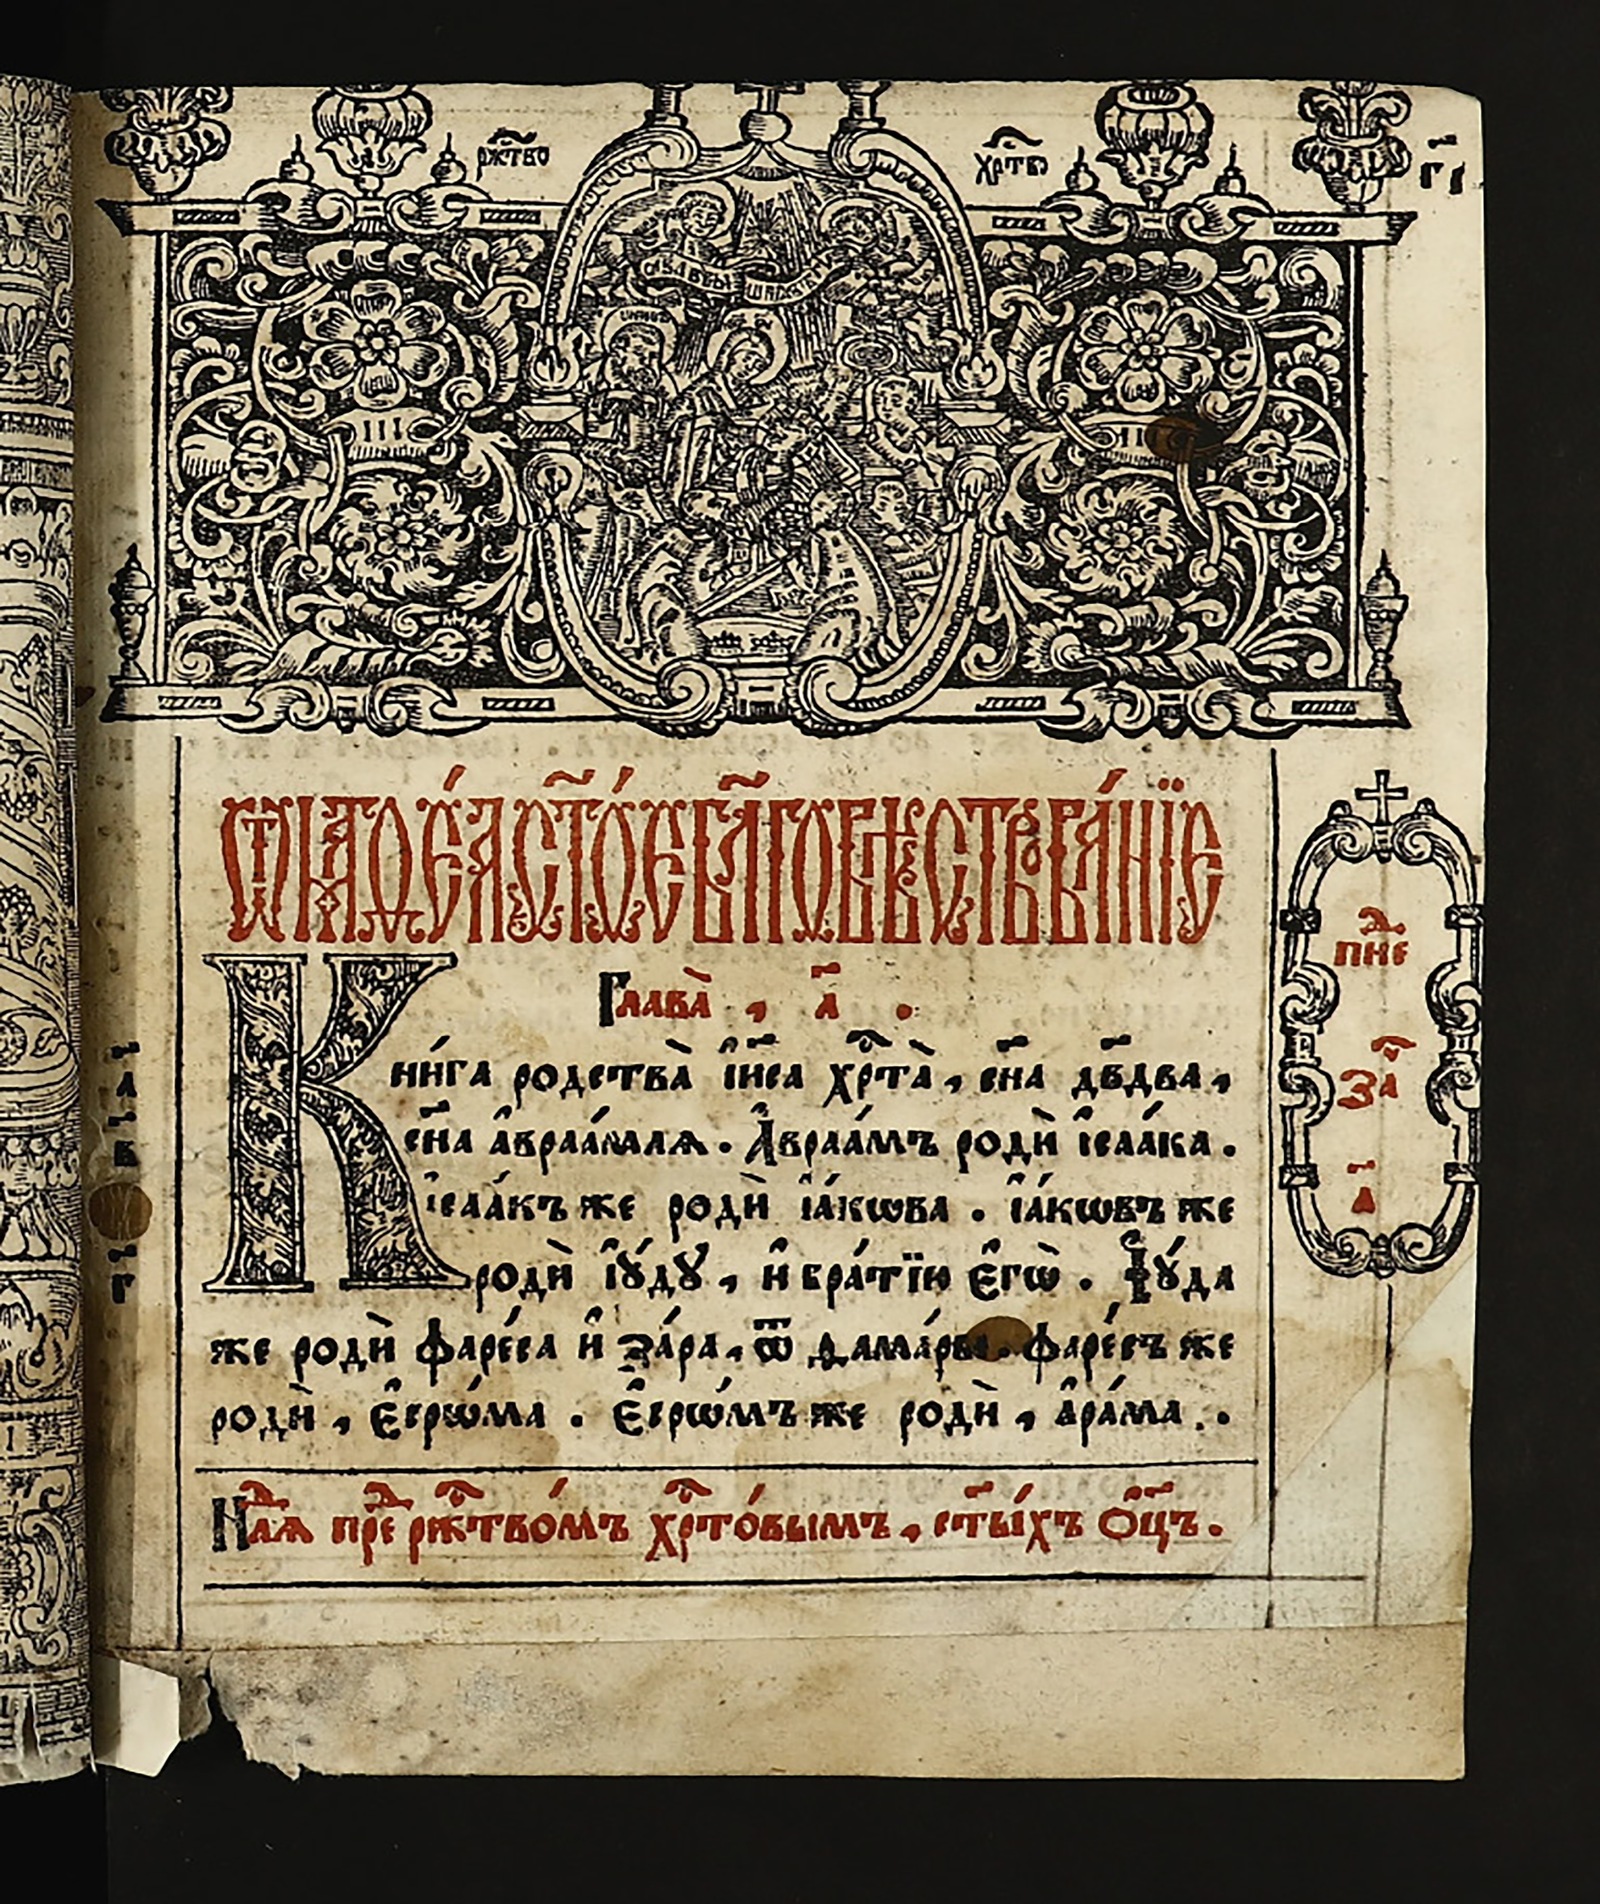 рж҃тво хр҃тво
г҃і
Ѿ маѳе́а ст҃о́е бл҃говѣствова́нїе
Глава̀ , а҃ .
Кни́га родства̀ і҆и҃са хр҃та̀ , сн҃а дв҃два ,
сн҃а а҆враа́мля . А҆враа́мъ родѝ і҆саа́ка .
і҆саа́къ же родѝ і҆а́кѡва . і҆а́кѡвъ же
родѝ і҆ꙋ́дꙋ , и҆ бра́тїю є҆гѡ̀ . І҆ꙋ́да
же родѝ фаре́са и҆ за́ра , ѿ ѳама́ры . фаре́съ же
родѝ , є҆срѡ́ма . є҆срѡ́мъ же родѝ , а҆ра́ма .
Нⷣлѧ преⷣ рж҃тво́мъ хр҃то́вымъ , ст҃ы́хъ ѻ҆ц҃ъ .
пнеⷣ
заⷱ
а҃
а҃
в҃
г҃